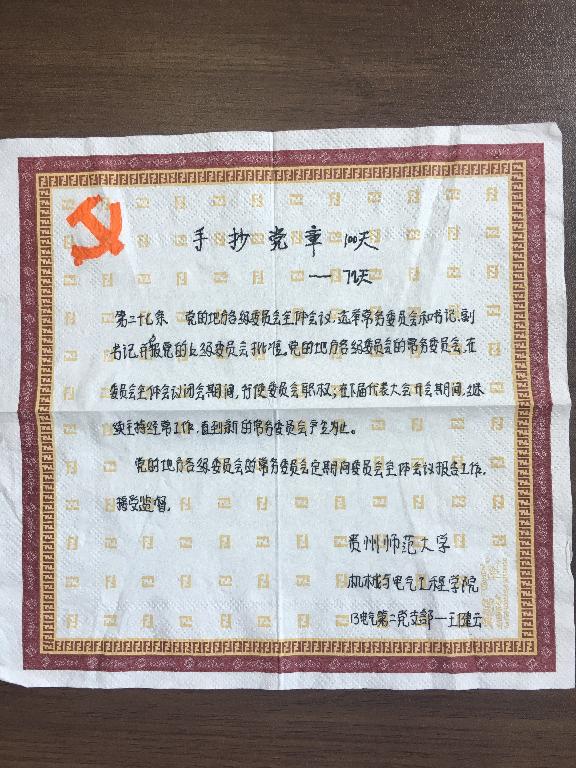 手抄党章 100天
——72天
第二十七条 党的地方各级委员会全体会议,选举常务委员会和书记、副
书记,并报党的上级委员会批准。党的地方各级委员会的常务委员会,在
委员会全体会议闭会期间,行使委员会职权;在下届代表大会开会期间,继
续主持经常工作,直到新的常务委员会产生为止。
党的地方各级委员会的常务委员会定期向委员会全体会议报告工作,
接受监督。
贵州师范大学
机械与电气工程学院
13电气第二党支部—王健云